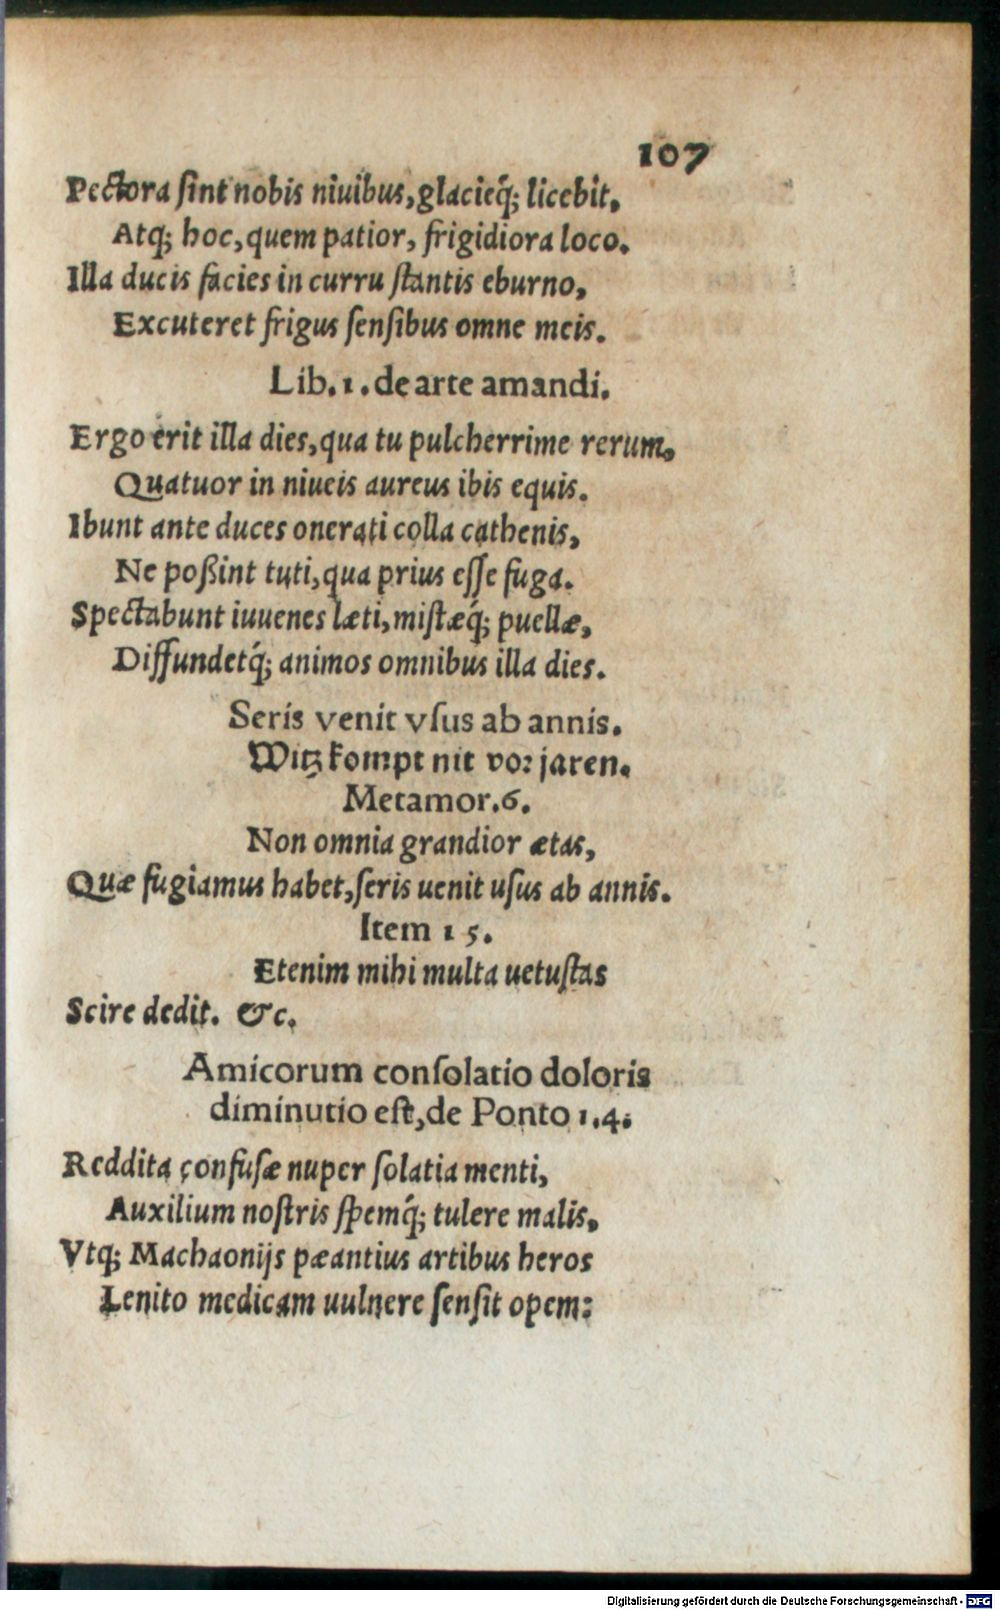 107
Pectora ſint nobis niuibus, glacieq́; licebit,
Atq; hoc, quem patior, frigidiora loco.
Illa ducis facies in curru ſtantis eburno,
Excuteret frigus ſenſibus omne meis.
Lib. 1. de arte amandi.
Ergo erit illa dies, qua tu pulcherrime rerum,
Quatuor in niueis aureus ibis equis.
Ibunt ante duces onerati colla cathenis,
Ne poßint tuti, qua prius eſſe fuga.
Spectabunt iuuenes læti, miſtæq́; puellæ,
Diffundetq́; animos omnibus illa dies.
Seris venit vſus ab annis.
Witz kompt nit vor jaren.
Metamor. 6.
Non omnia grandior ætas,
Quæ fugiamus habet, ſeris uenit uſus ab annis.
Item 15.
Etenim mihi multa uetuſtas
Scire dedit. &c.
Amicorum conſolatio doloris
diminutio eſt, de Ponto 1.4.
Reddita confuſæ nuper ſolatia menti,
Auxilium noſtris ſpemq́; tulere malis,
Vtq; Machaonijs pæantius artibus heros
Lenito medicam uulnere ſenſit opem:
Digitalisierung gefördert durch die Deutsche Forschungsgemeinschaft - DFG